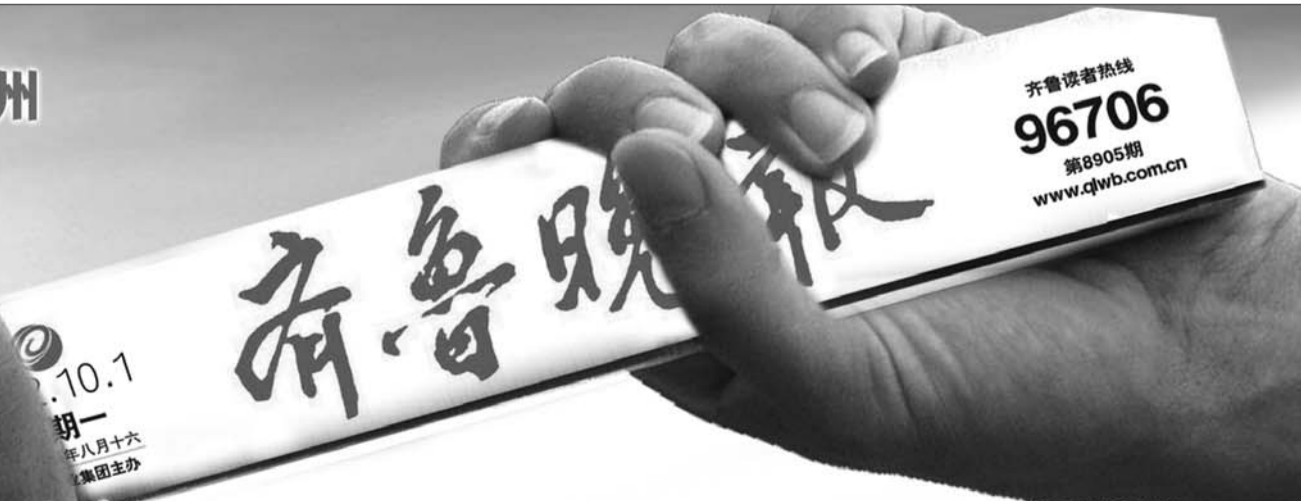 州
齐鲁晚报
齐鲁读者热线
96706
第8905期
www.qlwb.com.cn
.10.1
期一
年八月十六
集团主办